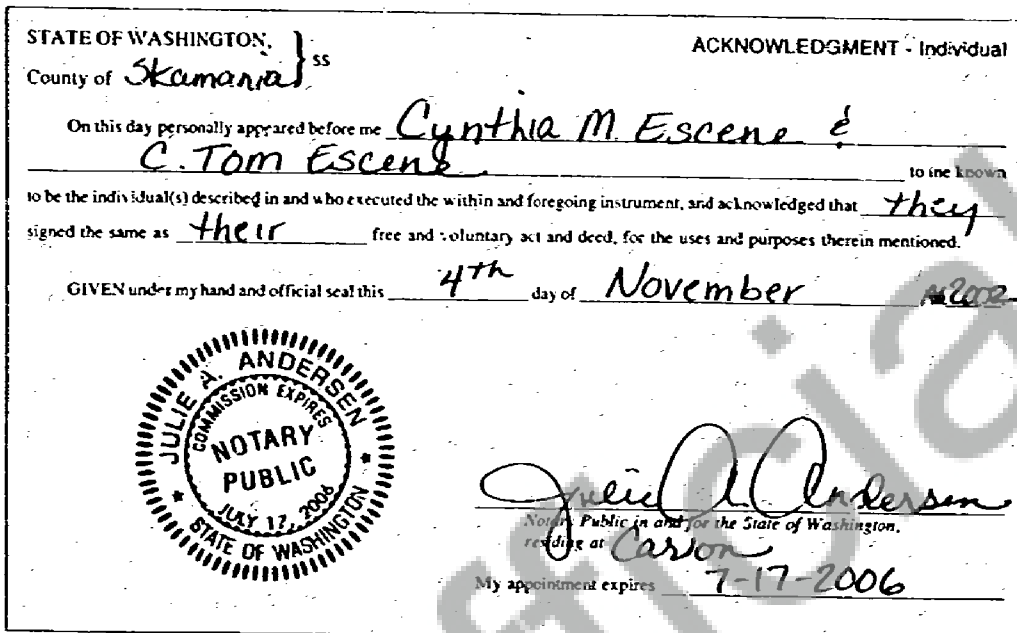 STATE OF WASHINGTON, } ss
ACKNOWLEDGMENT - Individual
County of Skamania
On this day personally appeared before me Cynthia M. Escene &
C. Tom Escene to me known
to be the individual(s) described in and who executed the within and foregoing instrument, and acknowledged that they
signed the same as their free and voluntary act and deed, for the uses and purposes therein mentioned.
GIVEN under my hand and official seal this 4th day of November 2002
JULIE A. ANDERSEN
COMMISSION EXPIRES
NOTARY
PUBLIC
JULY 17, 2006
STATE OF WASHINGTON
Julie A. Andersen
Notary Public in and for the State of Washington,
residing at Carson
My appointment expires 7-17-2006